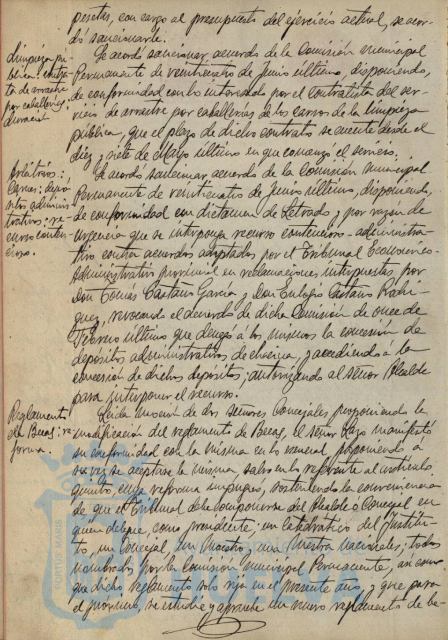 pesetas, con cargo al presupuesto del ejercicio actual, se acor-
dó sancionarle.
Limpieza pú-
blica: contra-
to de arrastre
por caballerías:
duración
Se acordó sancionar acuerdo de la Comisión Municipal
Permanente de veintiseis de Junio último, disponiendo,
de conformidad con lo interesado por el contratista del ser-
vicio de arrastre por caballerías de los carros de la limpieza
pública, que el plazo de dicho contrato se cuente desde el
diez y siete de Mayo último en que comenzó el servicio.
Arbitrios:
Carnes: depó-
sitos adminis-
trativos: re-
curso conten-
cioso.
Se acordó sancionar acuerdo de la Comisión Municipal
Permanente de veintiseis de Junio último, disponiendo,
de conformidad con dictamen de Letrado y por razón de
urgencia que se interponga recurso contencioso-administra-
tivo contra acuerdos adoptados por el Tribunal Económico-
Administrativo provincial en reclamaciones interpuestas por
Don Tomás Castaño García y Don Eulogio Castaño
revocando el acuerdo de dicha Comisión de once de
Febrero último que denegó á los mismos la concesión de
depósitos administrativos de y accediendo á la
concesión de dichos depósitos; autorizando al señor Alcalde
para interponer el recurso.
Reglamento
de Becas: re-
forma.
Leída moción de dos señores Concejales proponiendo la
modificación del reglamento de Becas, el señor Lazo manifestó
su conformidad con la misma en lo general, proponiendo á
su vez se aceptase la misma salvo en lo referente al artículo
quinto, cuya reforma impugnó, sosteniendo la conveniencia
de que el Tribunal debe componerse del Alcalde ó Concejal en
quien delegue, como presidente; un catedrático del Institu-
to, un Concejal, un Maestro y una Maestra nacionales; todos
nombrados por la Comisión Municipal Permanente, así como
que dicho reglamento solo rija en el presente año, y que para
el próximo, se estudie y apruebe un nuevo reglamento de be-
PORTUS MARIS